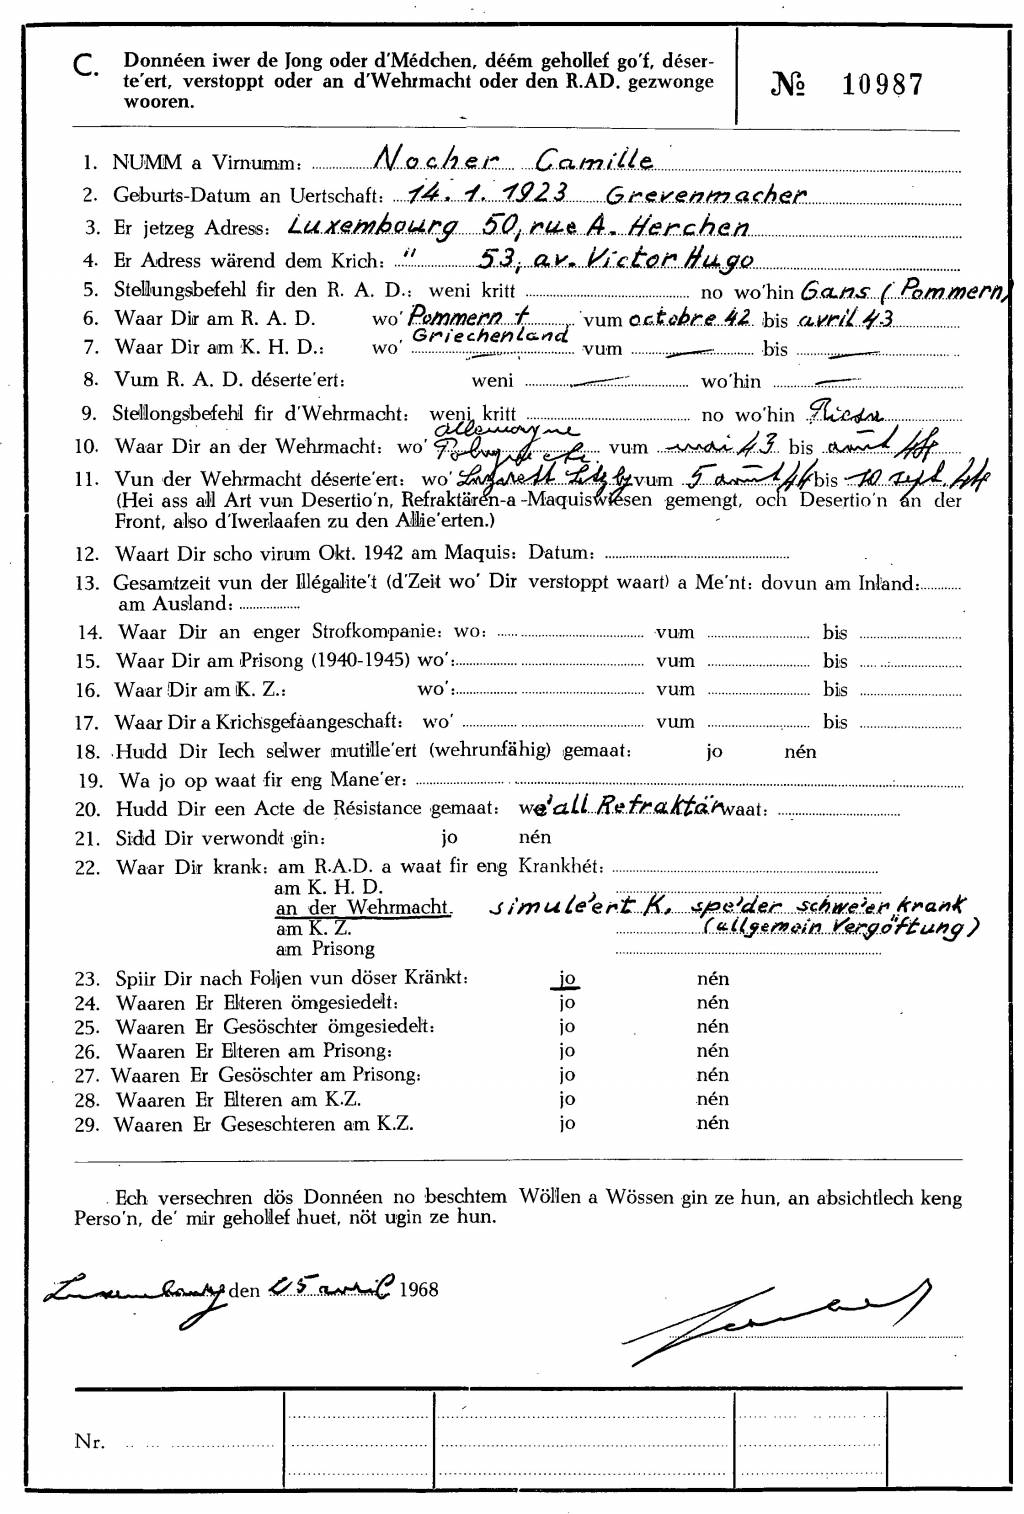 C. Donnéen iwer de Jong oder d'Médchen, déém gehollef go'f, déser-
te'ert, verstoppt oder an d'Wehrmacht oder den R.AD. gezwonge
wooren.
№ 10987
1. NUMM a Virnumm: Nocher Camille
2. Geburts-Datum an Uertschaft: 14. 1. 1923 Grevenmacher
3. Er jetzeg Adress: Luxembourg 50, rue A. Herchen
4. Er Adress wärend dem Krich: " 53, av. Victor Hugo
5. Stellungsbefehl fir den R. A. D.: weni kritt no wo'hin Gans (Pommern)
6. Waar Dir am R. A. D. wo' Pommern + vum octobre 42 bis avril 43
Griechenland
7. Waar Dir am K. H. D.: wo' — vum — bis —
8. Vum R. A. D. déserte'ert: weni — wo'hin —
9. Stellongsbefehl fir d'Wehrmacht: weni kritt no wo'hin Riesa
Allemagne
10. Waar Dir an der Wehrmacht: wo' vum mai 43 bis août 44
11. Vun der Wehrmacht déserte'ert: wo' Lazarett vum 5 août 44 bis 10 sept. 44
(Hei ass all Art vun Desertio'n, Refraktären-a -Maquiswiesen gemengt, och Desertio'n an der
Front, also d'Iwerlaafen zu den Allie'erten.)
12. Waart Dir scho virum Okt. 1942 am Maquis: Datum:
13. Gesamtzeit vun der Illégalite't (d'Zeit wo' Dir verstoppt waart) a Me'nt: dovun am Inland:
am Ausland:
14. Waar Dir an enger Strofkompanie: wo: vum bis
15. Waar Dir am Prisong (1940-1945) wo': vum bis
16. Waar Dir am K. Z.: wo': vum bis
17. Waar Dir a Krichsgefaangeschaft: wo' vum bis
18. Hudd Dir Iech selwer mutille'ert (wehrunfähig) gemaat: jo nén
19. Wa jo op waat fir eng Mane'er:
20. Hudd Dir een Acte de Résistance gemaat: we'all Refraktär waat:
21. Sidd Dir verwondt gin: jo nén
22. Waar Dir krank: am R.A.D. a waat fir eng Krankhét:
am K. H. D.
an der Wehrmacht. simule'ert K. spe'der schwe'er krank
am K. Z. (allgemein Vergöftung)
am Prisong
23. Spiir Dir nach Foljen vun döser Kränkt: jo nén
24. Waaren Er Elteren ömgesiedelt: jo nén
25. Waaren Er Gesöschter ömgesiedelt: jo nén
26. Waaren Er Elteren am Prisong: jo nén
27. Waaren Er Gesöschter am Prisong: jo nén
28. Waaren Er Elteren am K.Z. jo nén
29. Waaren Er Geseschteren am K.Z. jo nén
Ech versechren dös Donnéen no beschtem Wöllen a Wössen gin ze hun, an absichtlech keng
Perso'n, de' mir gehollef huet, nöt ugin ze hun.
Luxembourg den 25 avril 1968
Nr.